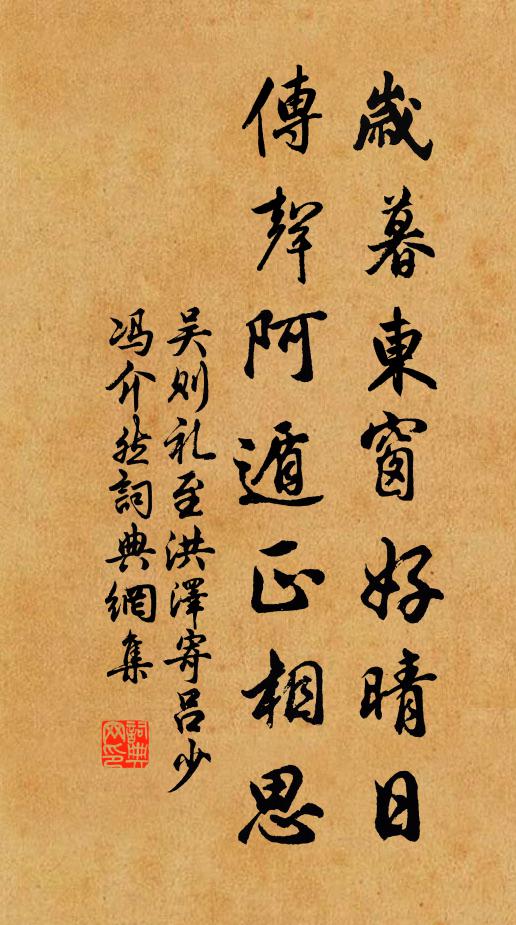 歲暮東窗好晴日
傳聲阿遁正相思
吴则礼至洪澤寄吕少
冯介然詞典網集
詞典網印